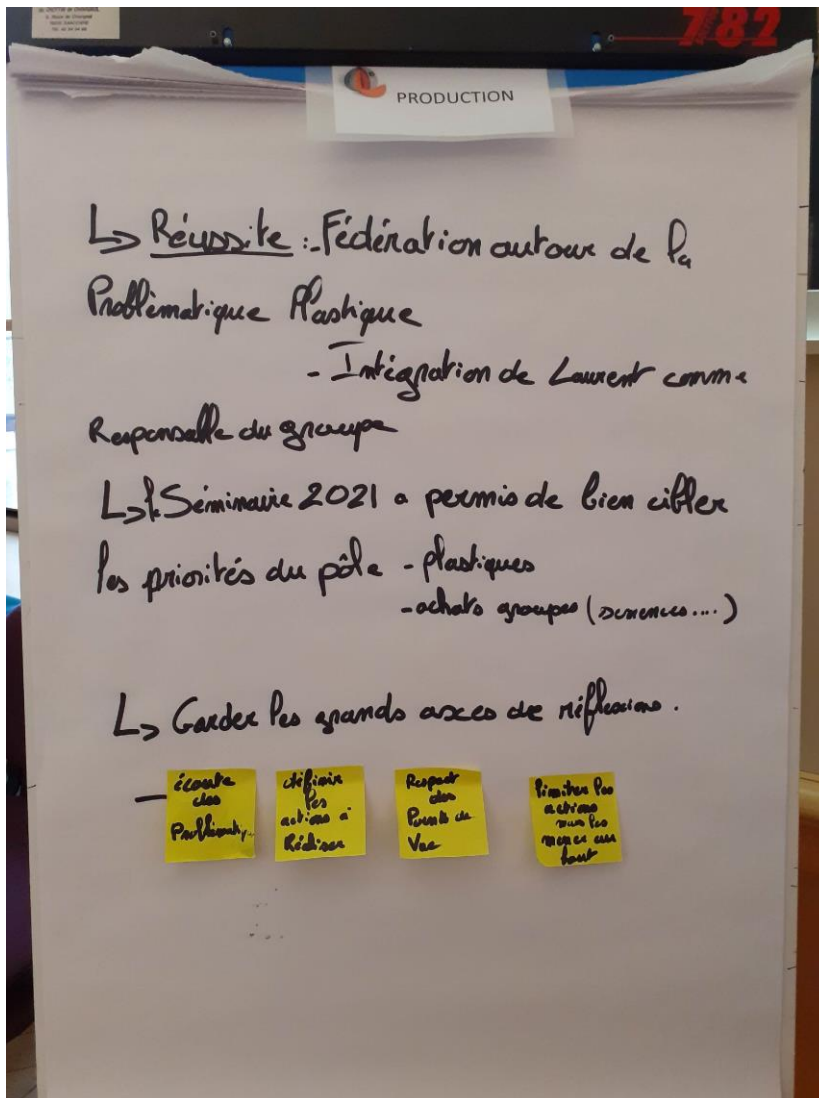 782
PRODUCTION
↳ Réussite : - Fédération autour de la
Problématique Plastique
- Intégration de Laurent comme
Responsable du groupe
↳ le Séminaire 2021 a permis de bien cibler
les priorités du pôle - plastiques
- achats groupes (semences....)
↳ Garder les grands axes de réflexions.
écoute
des
Problématiq...
définir
les
actions à
Réaliser
Respect
des
Points de
Vue
limiter les
actions
mais les
mener au
bout